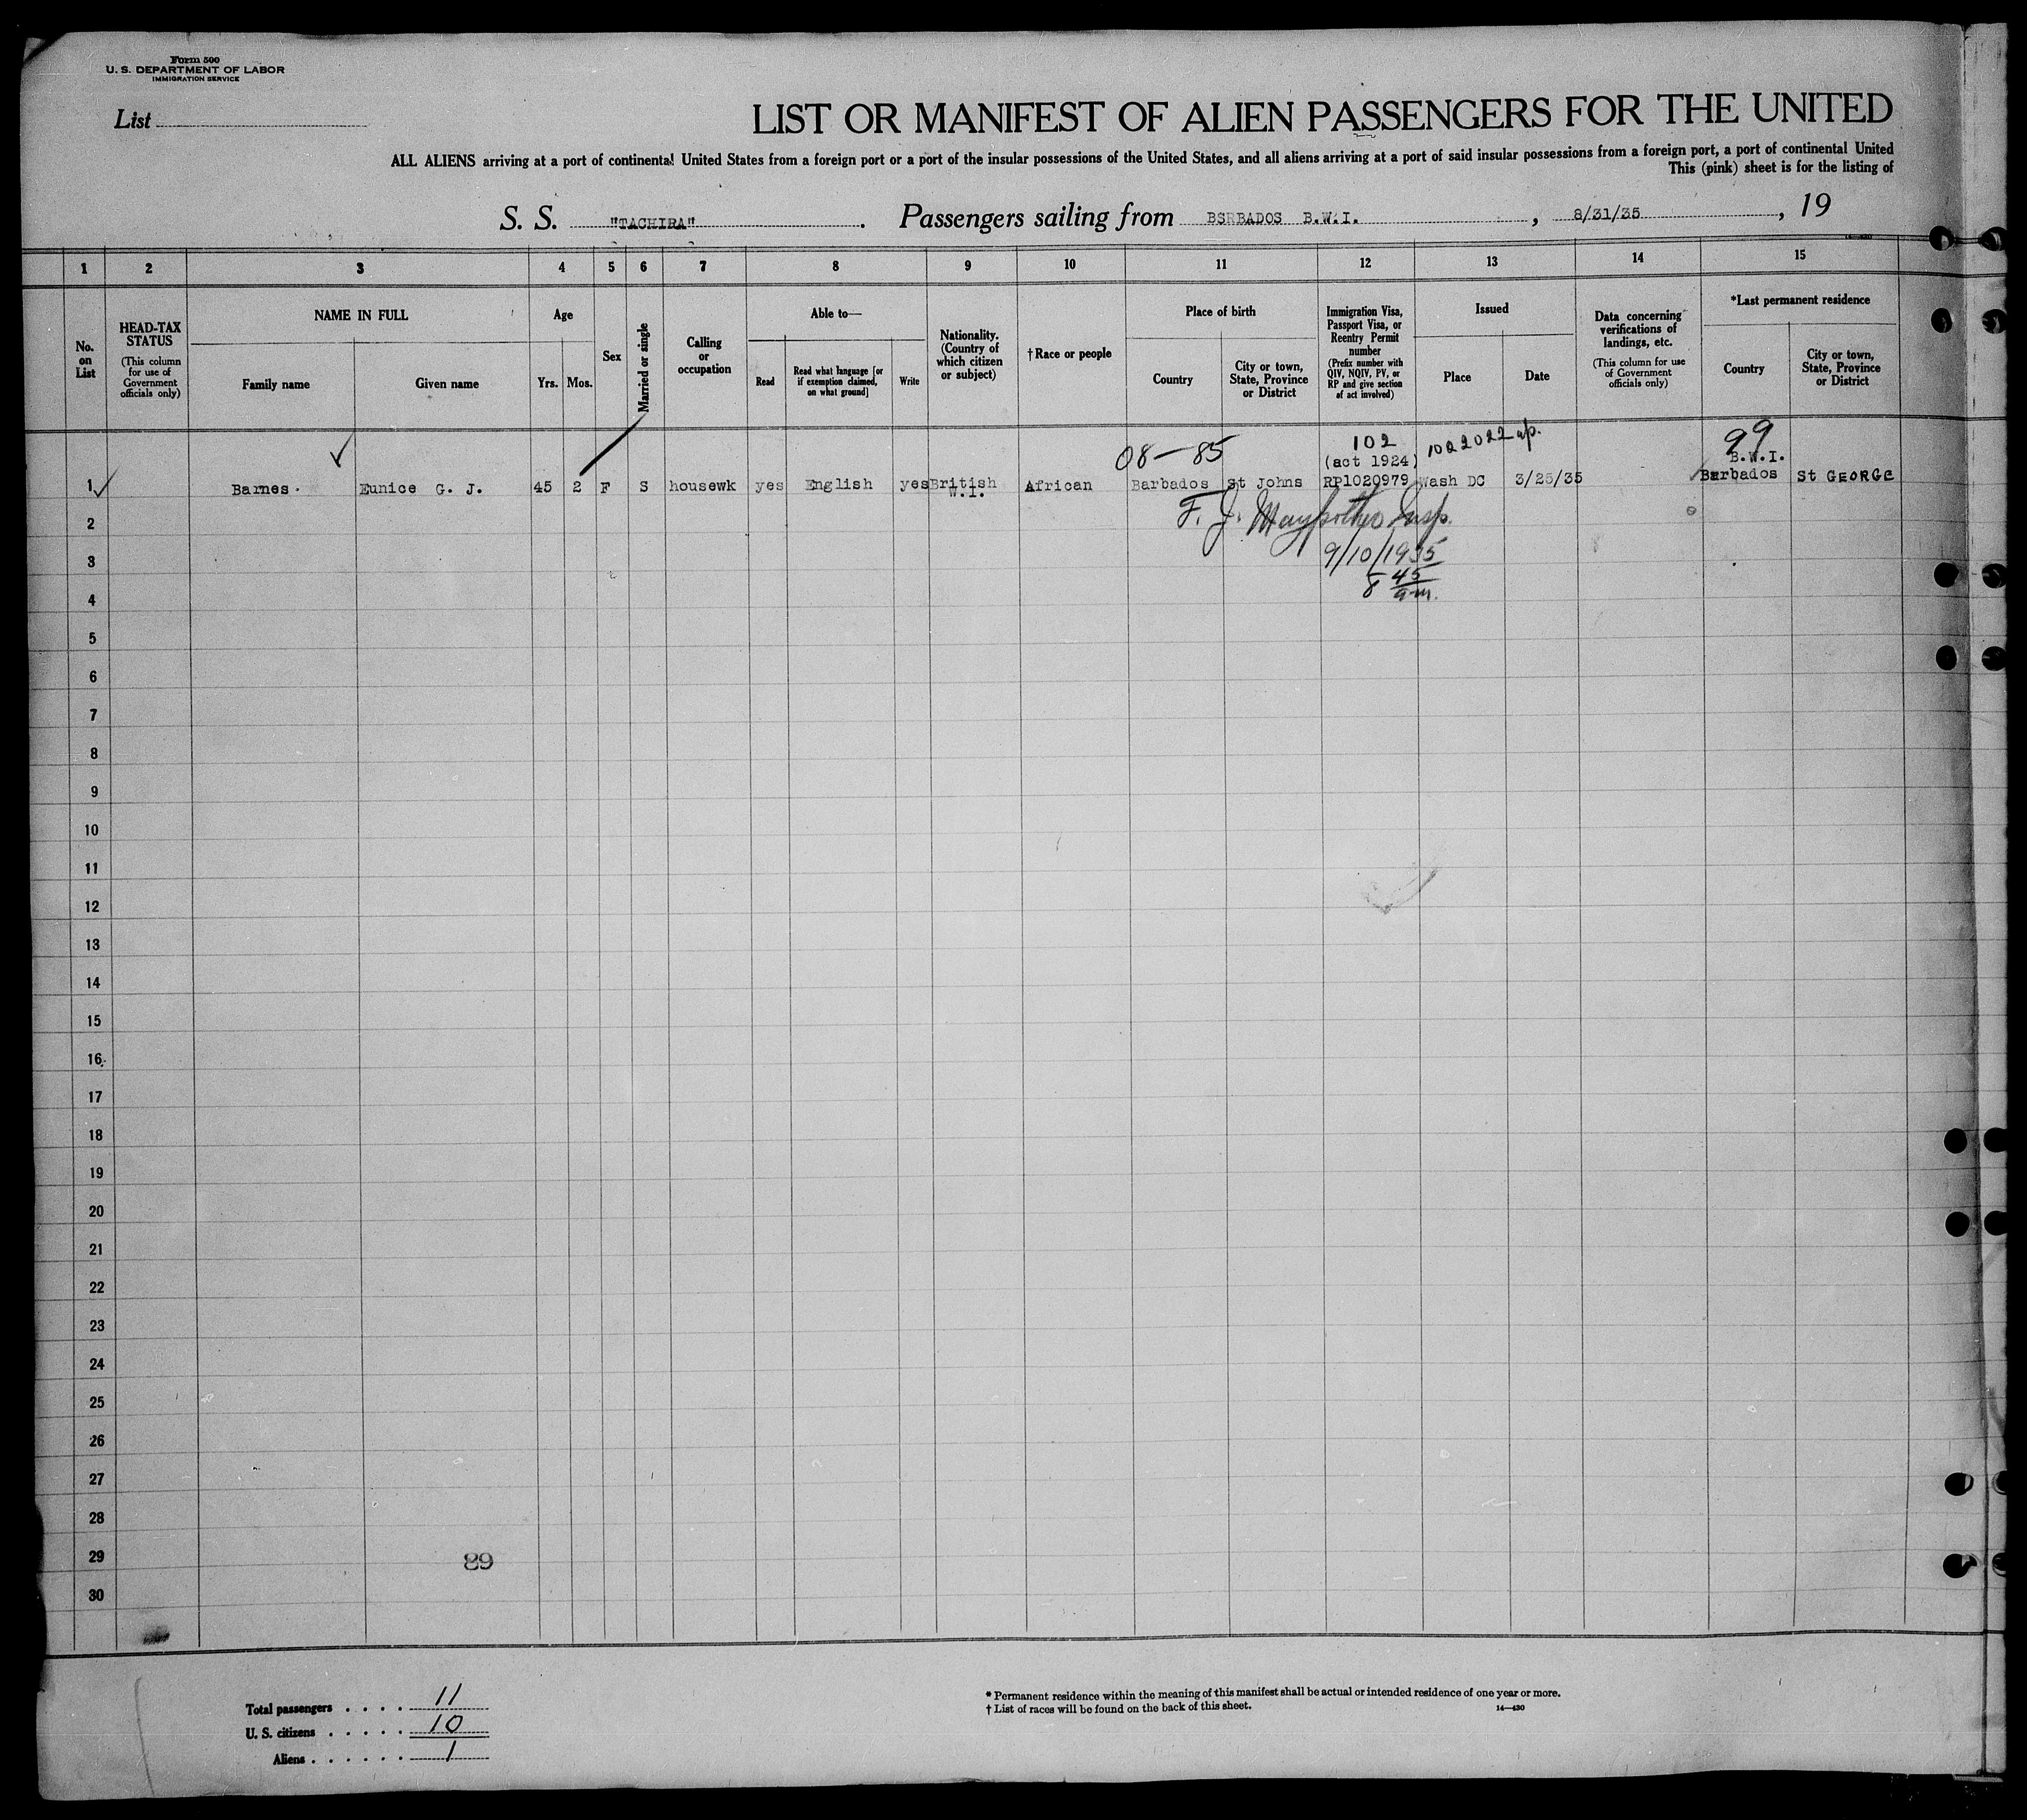 Form 500
U. S. DEPARTMENT OF LABOR
IMMIGRATION SERVICE
List
LIST OR MANIFEST OF ALIEN PASSENGERS FOR THE UNITED
ALL ALIENS arriving at a port of continental United States from a foreign port or a port of the insular possessions of the United States, and all aliens arriving at a port of said insular possessions from a foreign port, a port of continental United
This (pink) sheet is for the listing of
S. S. "TACHIRA". Passengers sailing from BSRBADOS B.W.I., 8/31/35, 19
1 2 3 4 5 6 7 8 9 10 11 12 13 14 15
No. on List
HEAD-TAX STATUS
(This column for use of Government officials only)
NAME IN FULL
Family name
Given name
Age
Yrs. Mos.
Sex
Married or single
Calling or occupation
Able to—
Read
Read what language [or if exemption claimed, on what ground]
Write
Nationality. (Country of which citizen or subject)
†Race or people
Place of birth
Country
City or town, State, Province or District
Immigration Visa, Passport Visa, or Reentry Permit number
(Prefix number with QIV, NQIV, PV, or RP and give section of act involved)
Issued
Place
Date
Data concerning verifications of landings, etc.
(This column for use of Government officials only)
*Last permanent residence
Country
City or town, State, Province or District
08—85 102 1022022 99
(act 1924) B.W.I.
1 Barnes Eunice G. J. 45 2 F S housewk yes English yes British W.I. African Barbados St Johns RP1020979 Wash DC 3/25/35 Barbados St GEORGE
2 F. J. Insp.
3 9/10/1935
4 8 45 a.m.
5
6
7
8
9
10
11
12
13
14
15
16
17
18
19
20
21
22
23
24
25
26
27
28
29 89
30
Total passengers . . . . 11
U. S. citizens . . . . . 10
Aliens . . . . . . 1
* Permanent residence within the meaning of this manifest shall be actual or intended residence of one year or more.
† List of races will be found on the back of this sheet. 14—430